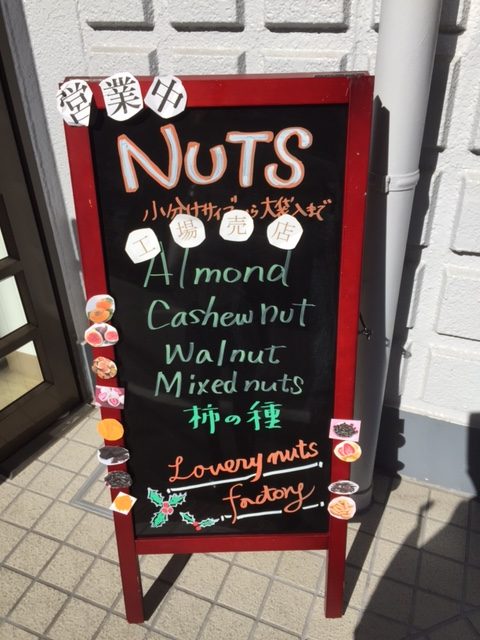 営業中
NUTS
小分けサイズから大袋入まで
工場売店
Almond
Cashew nut
Walnut
Mixed nuts
柿の種
Lovery nuts
factory